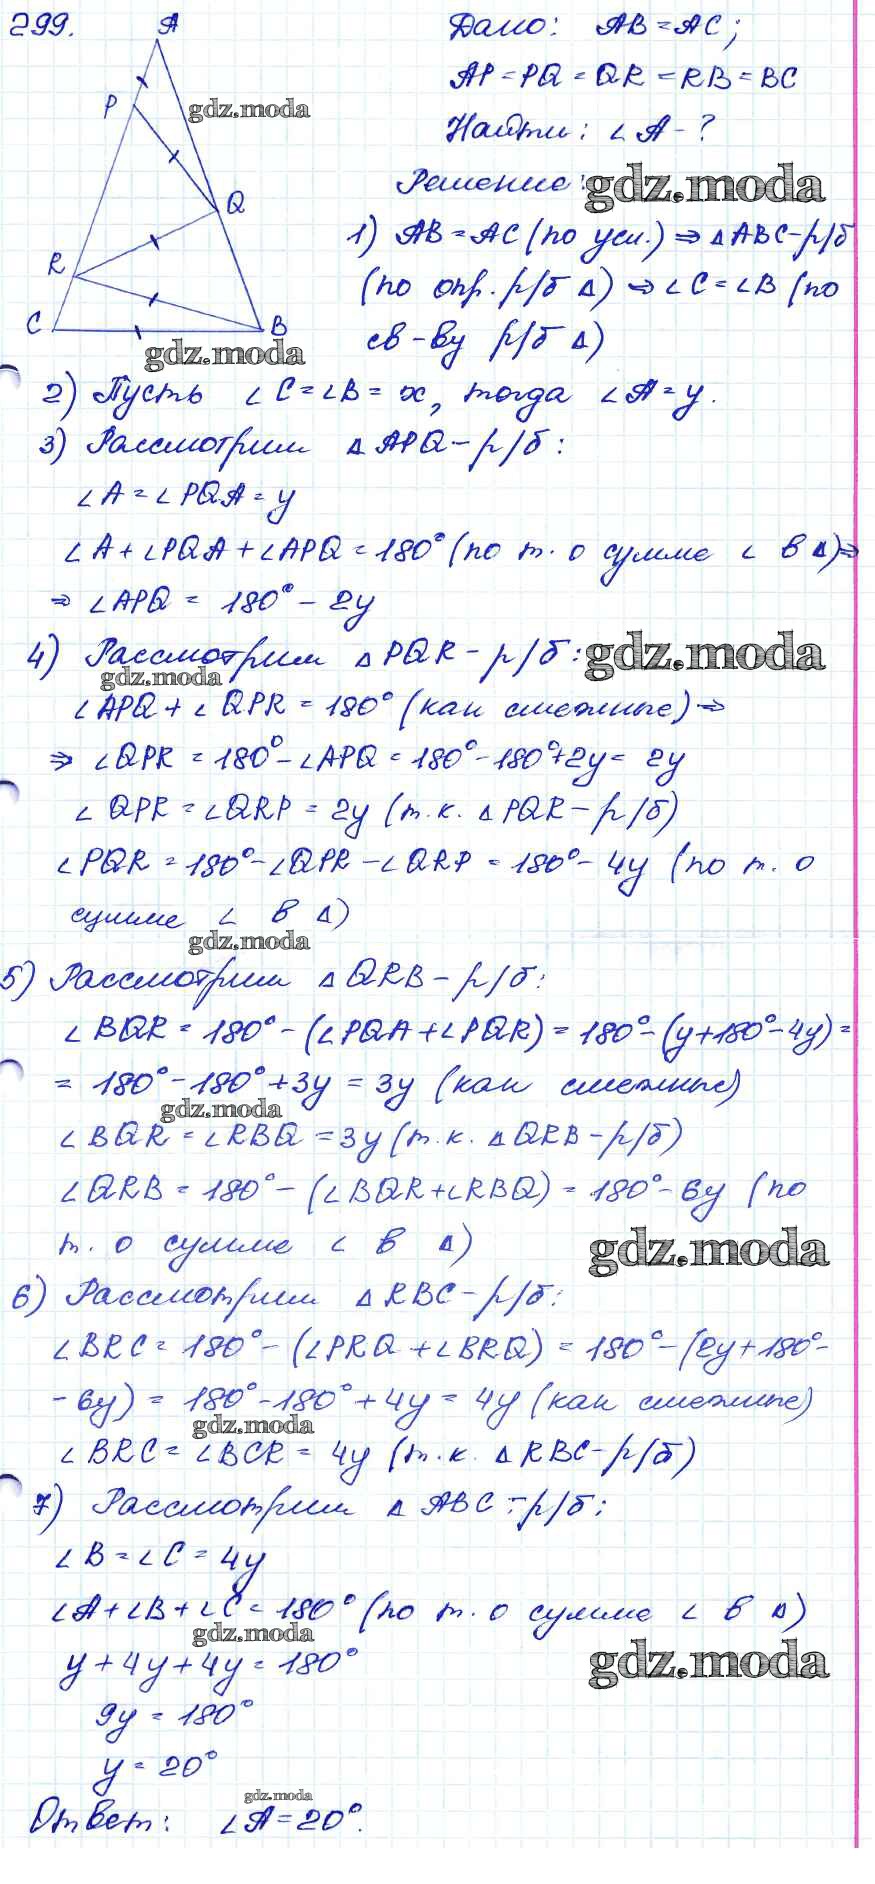 299.
A
P
Q
R
C
B
gdz.moda
Дано: AB = AC;
AP = PQ = QR = RB = BC
Найти: ∠A - ?
Решение:
gdz.moda
1) AB = AC (по усл.) ⇒ ΔABC - р/б
(по опр. р/б Δ) ⇒ ∠C = ∠B (по
св-ву р/б Δ)
gdz.moda
2) Пусть ∠C = ∠B = x, тогда ∠A = y.
3) Рассмотрим ΔAPQ - р/б:
∠A = ∠PQA = y
∠A + ∠PQA + ∠APQ = 180° (по т. о сумме ∠ в Δ) ⇒
⇒ ∠APQ = 180° - 2y
4) Рассмотрим ΔPQR - р/б:
gdz.moda
gdz.moda
∠APQ + ∠QPR = 180° (как смежные) ⇒
⇒ ∠QPR = 180° - ∠APQ = 180° - 180° + 2y = 2y
∠QPR = ∠QRP = 2y (т.к. ΔPQR - р/б)
∠PQR = 180° - ∠QPR - ∠QRP = 180° - 4y (по т. о
сумме ∠ в Δ)
gdz.moda
5) Рассмотрим ΔQRB - р/б:
∠BQR = 180° - (∠PQA + ∠PQR) = 180° - (y + 180° - 4y) =
= 180° - 180° + 3y = 3y (как смежные)
gdz.moda
∠BQR = ∠RBQ = 3y (т.к. ΔQRB - р/б)
∠QRB = 180° - (∠BQR + ∠RBQ) = 180° - 6y (по
т. о сумме ∠ в Δ)
gdz.moda
6) Рассмотрим ΔRBC - р/б:
∠BRC = 180° - (∠PRQ + ∠BRQ) = 180° - (2y + 180° -
- 6y) = 180° - 180° + 4y = 4y (как смежные)
gdz.moda
∠BRC = ∠BCR = 4y (т.к. ΔRBC - р/б)
7) Рассмотрим ΔABC - р/б:
∠B = ∠C = 4y
∠A + ∠B + ∠C = 180° (по т. о сумме ∠ в Δ)
gdz.moda
gdz.moda
y + 4y + 4y = 180°
9y = 180°
y = 20°
gdz.moda
Ответ: ∠A = 20°.